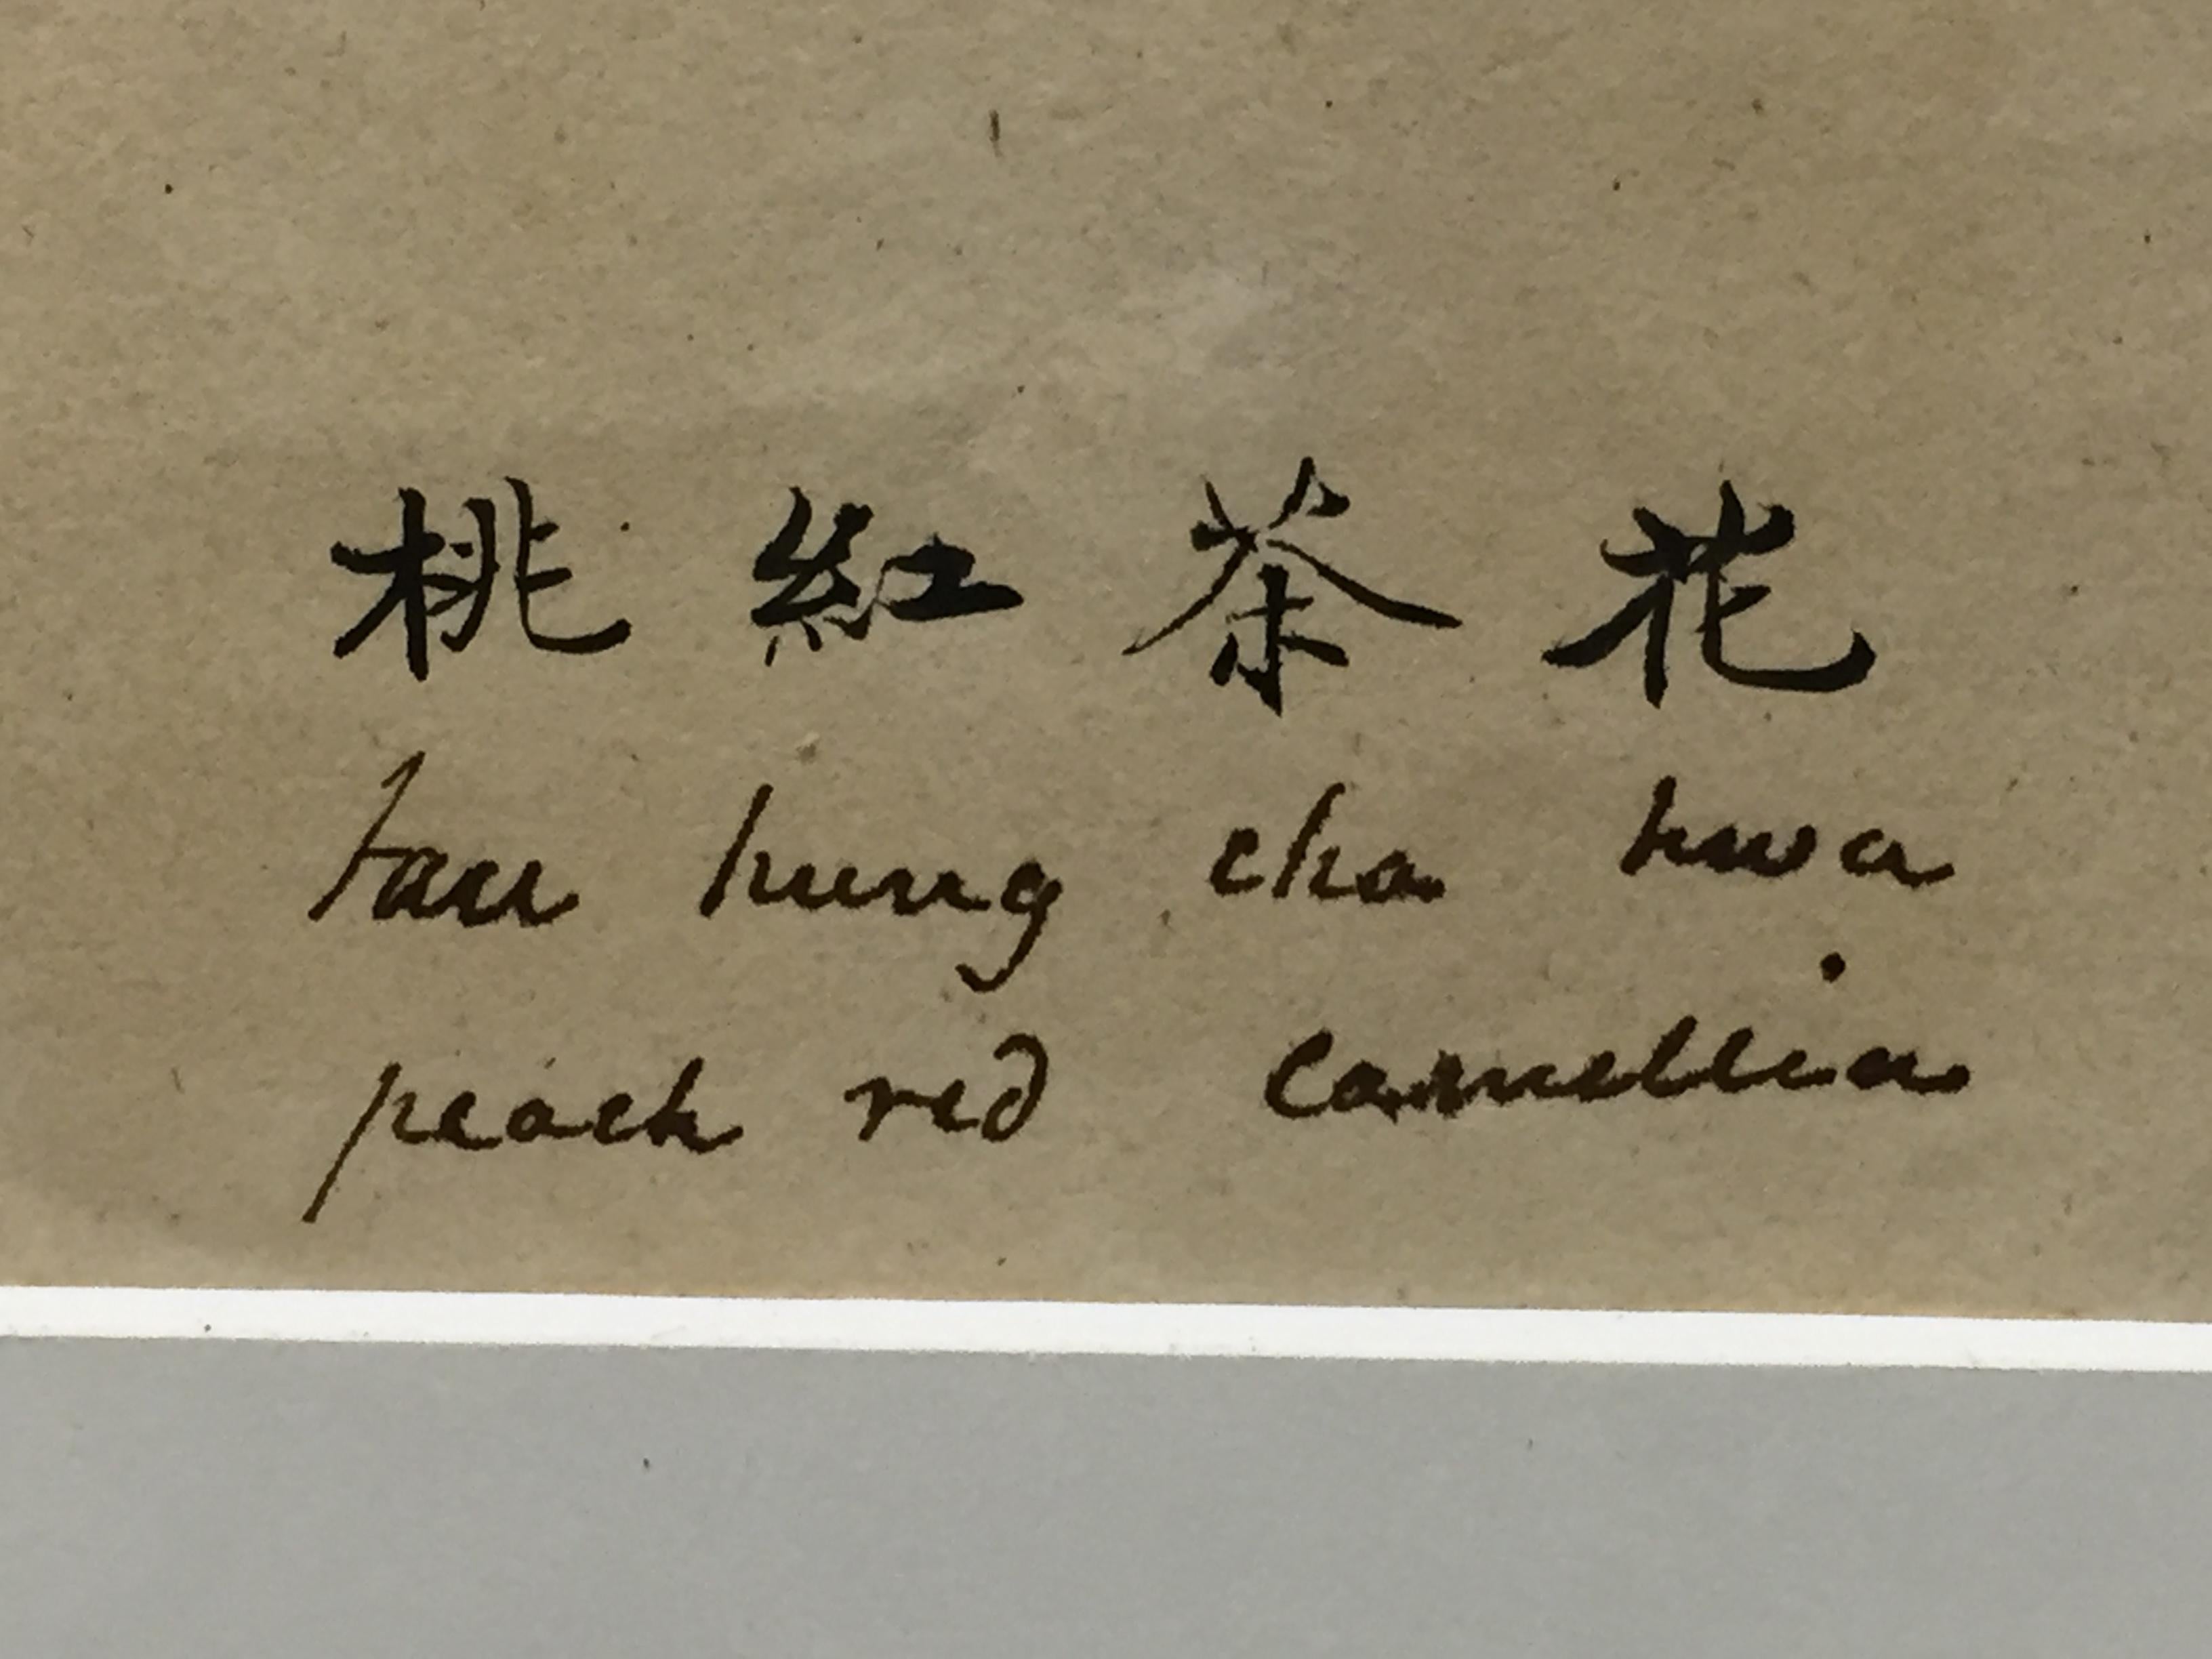 桃紅茶花
tau hung cha hwa
peach red camellia